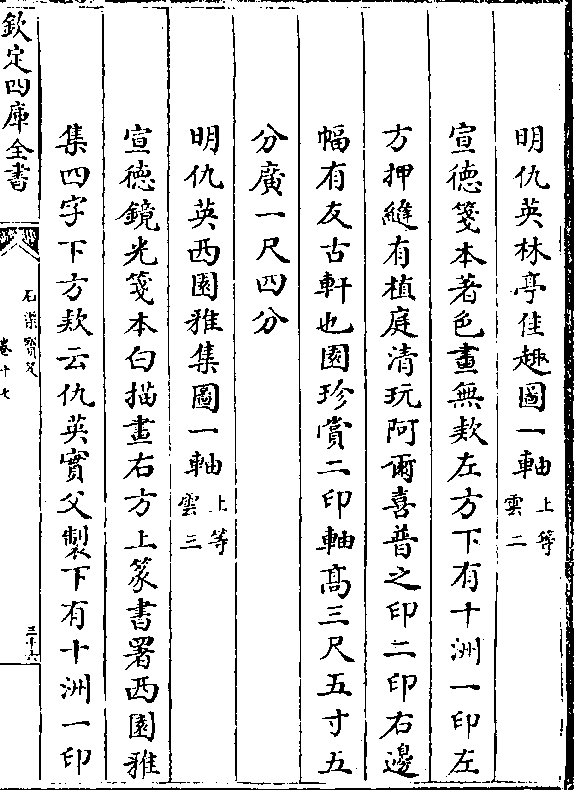 明仇英林亭佳趣圖一軸上等雲二
宣德箋本著色畫無款左方下有十洲一印左
方押縫有植庭清玩阿爾喜普之印二印右邊
幅有友古軒也園珍賞二印軸髙三尺五寸五
分廣一尺四分
明仇英西園雅集圖一軸上等雲三
宣德鏡光箋本白描畫右方上篆書署西園雅
集四字下方款云仇英實父製下有十洲一印
欽定四庫全書
石渠寶笈
卷十七
三十六